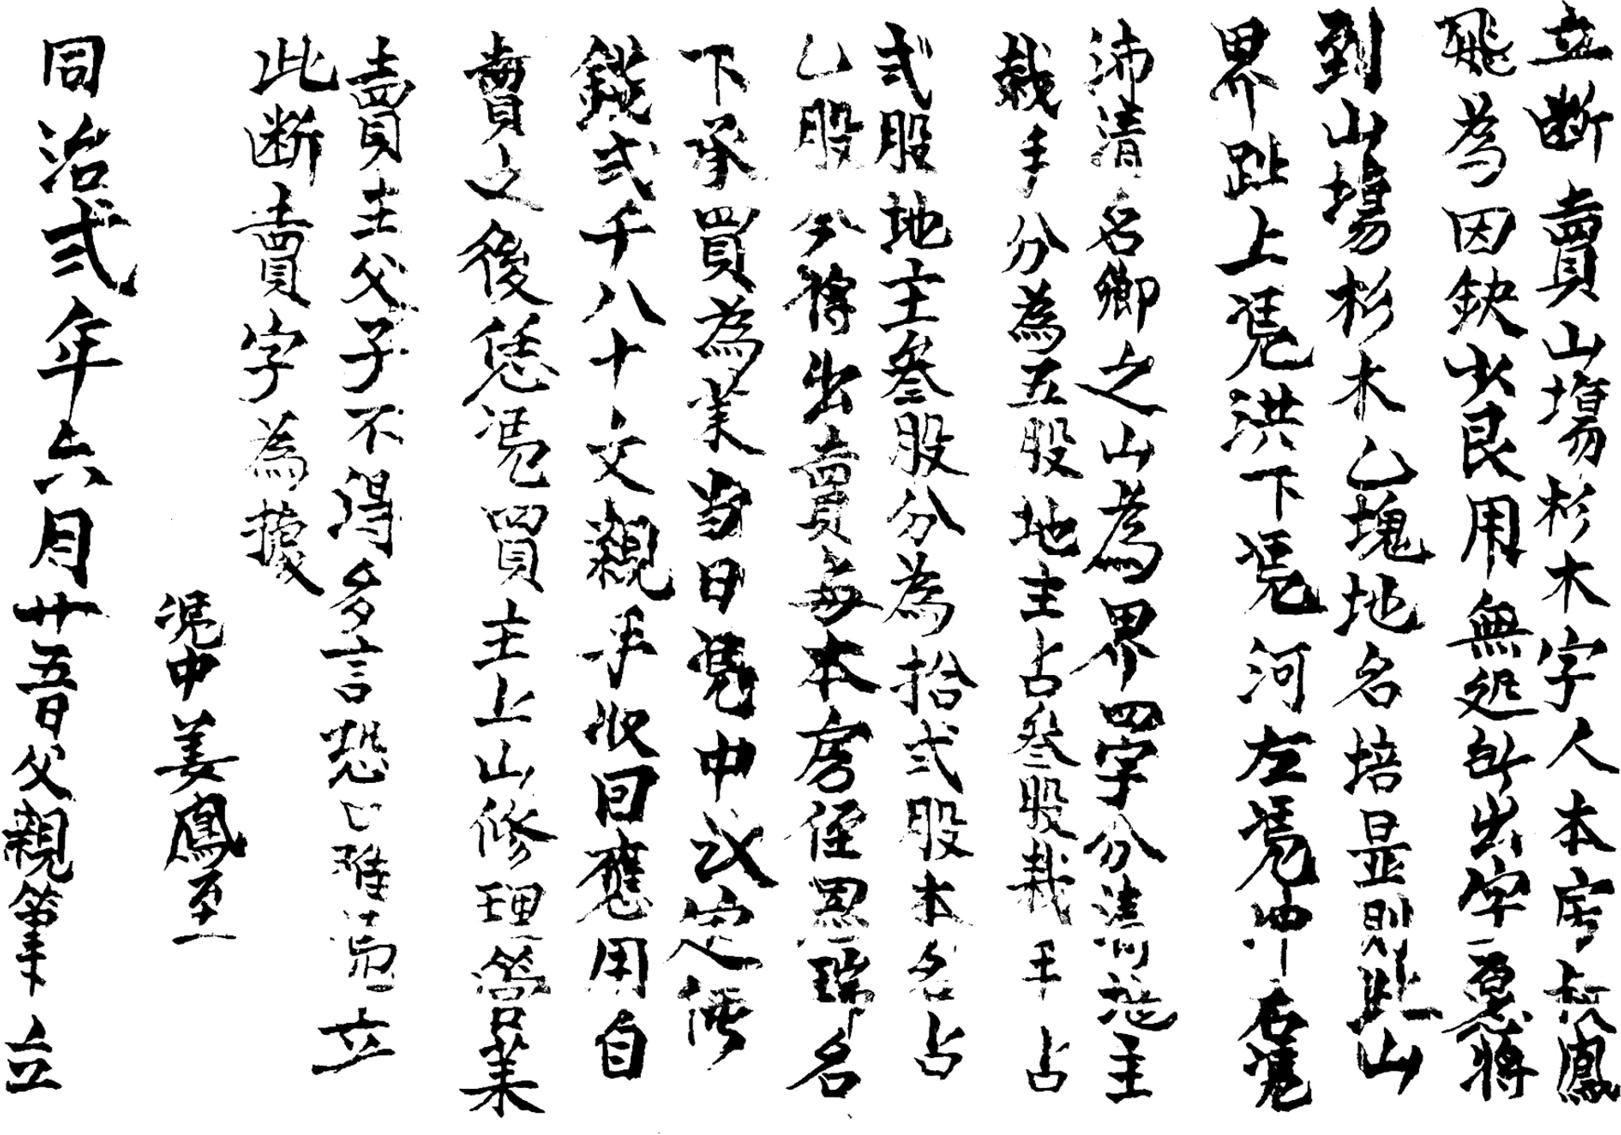 立断賣山塲杉木字人本房叔鳳
飛為因缺少艮用無処所出字愿將
到山塲杉木乙塊地名培显則此山
界趾上凴洪下凴河左凴冲右凴
沛清名卿之山為界四字分清地主
栽手分為五股地主占叁股栽手占
弍股地主叁股分為拾弍股本名占
乙股分傅出賣每本房侄恩瑞名
下承買為業當日凴中议定價
錢弍千八十文親手收回應用自
賣之後恁凴買主上山修理營業
賣主父子不得多言恐口难凴立
此断賣字為據
凴中姜鳳至
同治弍年六月廿五日父親筆立